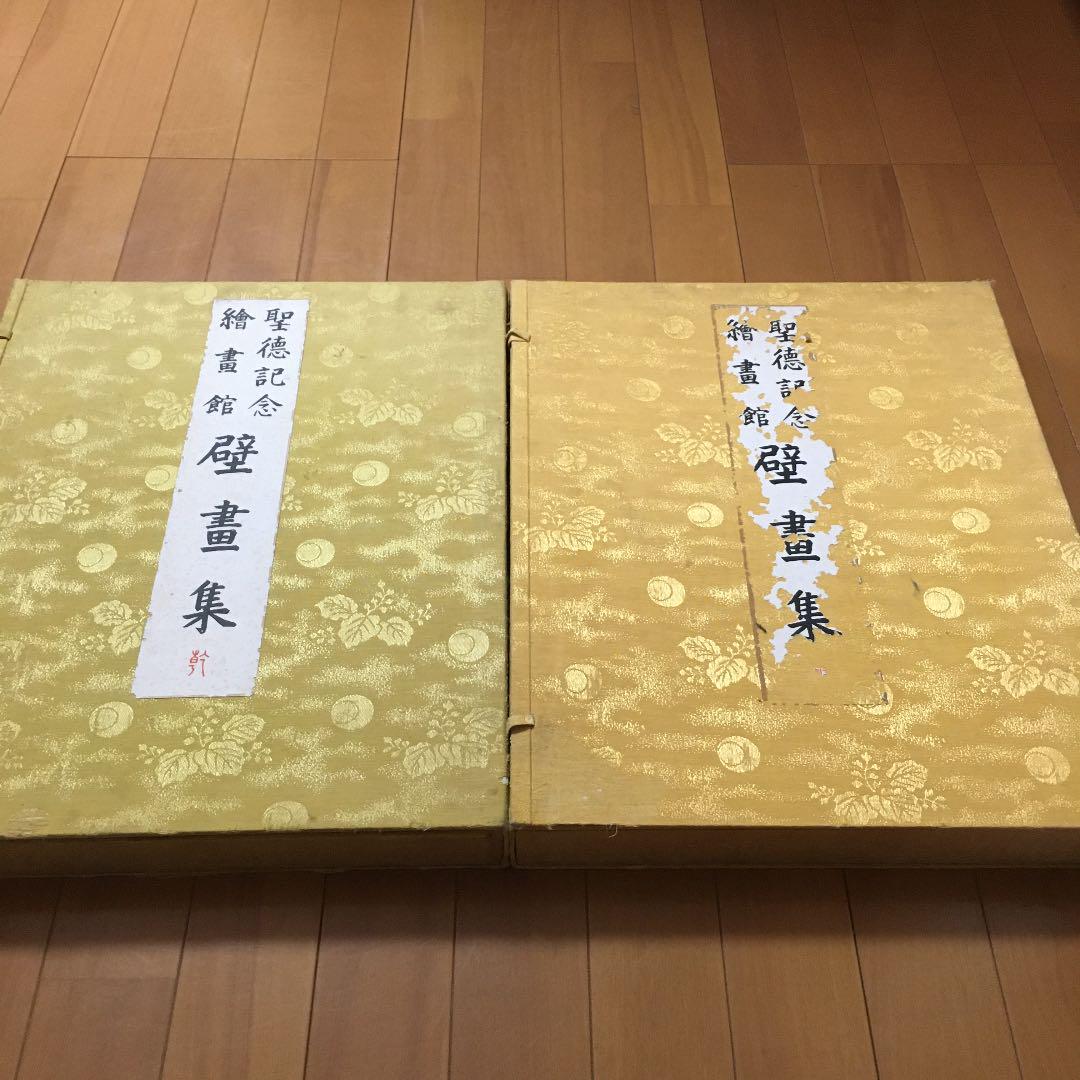 聖德記念
繪畫館
壁畫集
乾
聖德記念
繪畫館
壁畫集